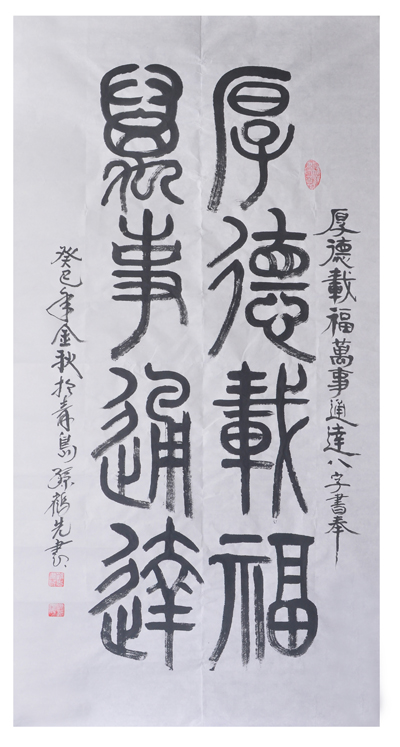 厚德載福萬事通達八字書奉
厚德載福
萬事通達
癸巳年金秋於青島孫鶴先書